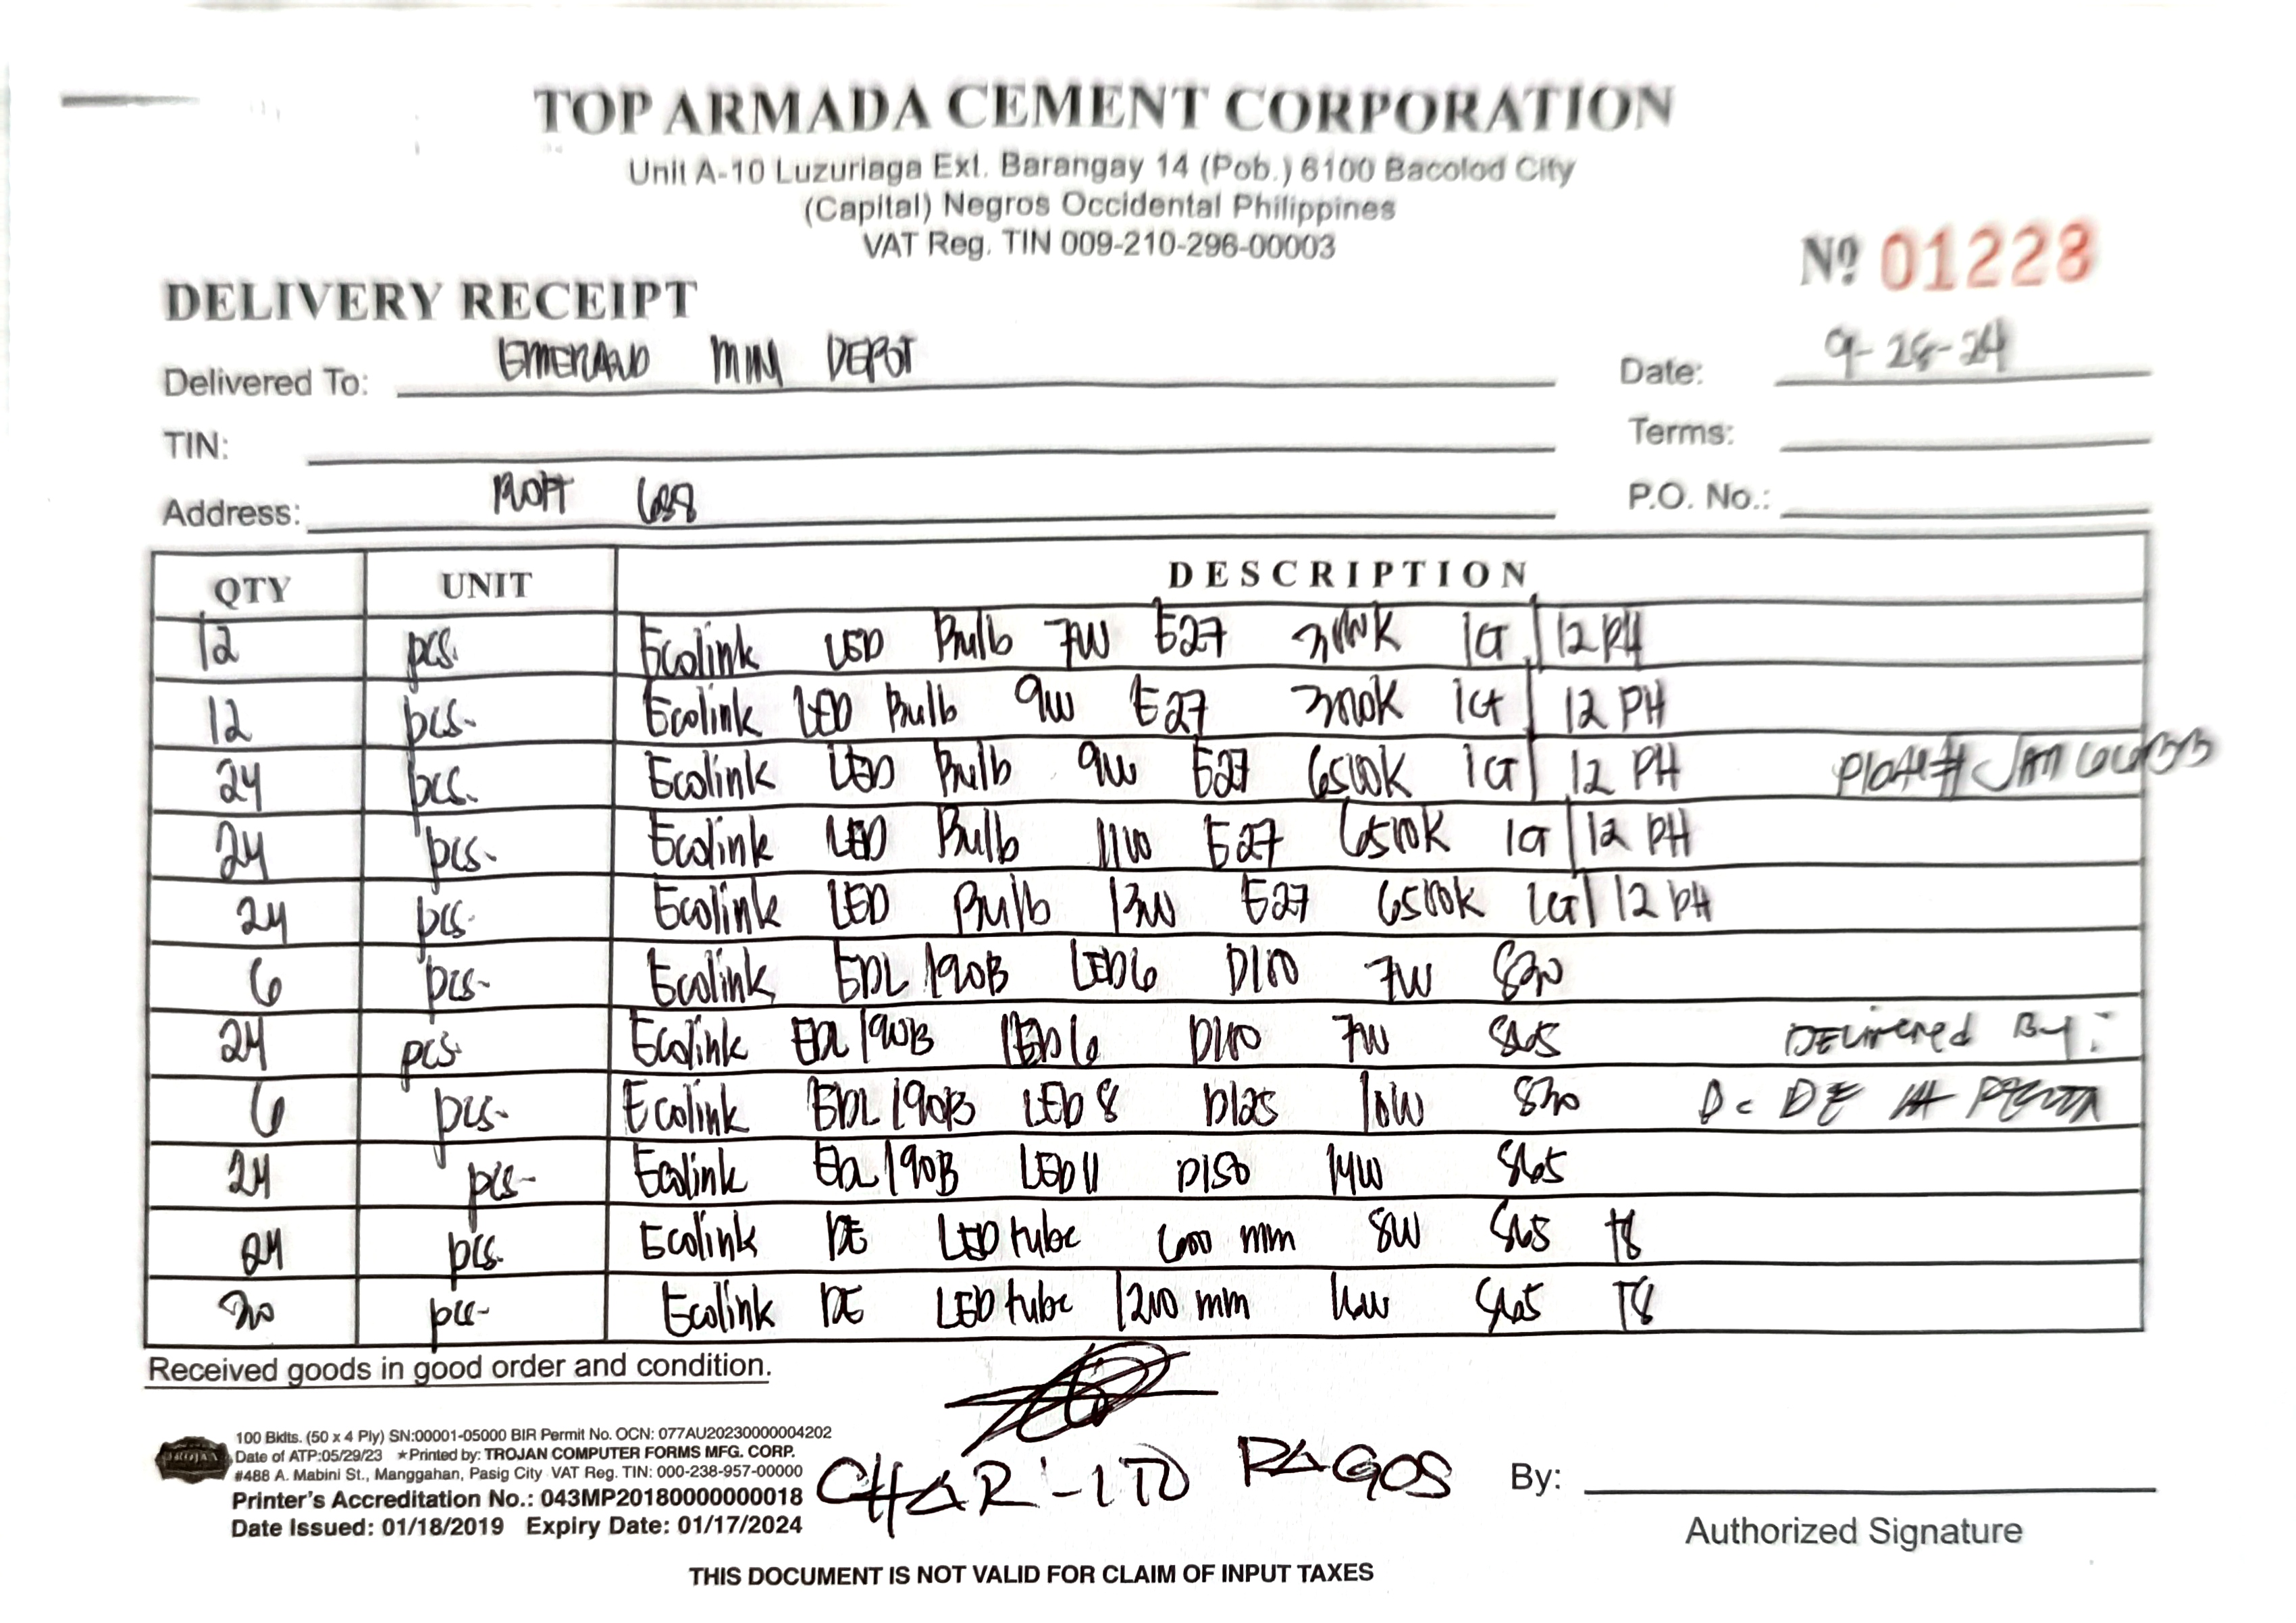 TOP ARMADA CEMENT CORPORATION
Unit A-10 Luzuriaga Ext. Barangay 14 (Pob.) 6100 Bacolod City
(Capital) Negros Occidental Philippines
VAT Reg. TIN 009-210-296-00003
Nº 01228
DELIVERY RECEIPT
Delivered To: EMERALD MINI DEPOT
Date: 9-28-24
TIN:
Terms:
Address:
P.O. No.:
QTY UNIT DESCRIPTION
12 pcs. Ecolink LED Bulb 7W E27 3000K 1CT/12 PH
12 pcs. Ecolink LED Bulb 9W E27 3000K 1CT/12 PH
24 pcs. Ecolink LED Bulb 9W E27 6500K 1CT/12 PH Plate#
24 pcs. Ecolink LED Bulb 11W E27 6500K 1CT/12 PH
24 pcs. Ecolink LED Bulb 13W E27 6500K 1CT/12 PH
6 pcs. Ecolink EDL190B LED6 D100 7W 830
24 pcs. Ecolink EDL190B LED6 D100 7W 865 DELivered By:
6 pcs. Ecolink EDL190B LED8 D125 10W 830 DE
24 pcs. Ecolink EDL190B LED11 D150 14W 865
24 pcs. Ecolink DE LED tube 600 mm 8W 865 T8
30 pcs. Ecolink DE LED tube 1200 mm 16W 865 T8
Received goods in good order and condition.
100 Bklts. (50 x 4 Ply) SN:00001-05000 BIR Permit No. OCN: 077AU20230000004202
Date of ATP:05/29/23 ★Printed by: TROJAN COMPUTER FORMS MFG. CORP.
#488 A. Mabini St., Manggahan, Pasig City VAT Reg. TIN: 000-238-957-00000
Printer's Accreditation No.: 043MP20180000000018
Date Issued: 01/18/2019 Expiry Date: 01/17/2024
TROJAN
CHARLITO PAGOS
By:
Authorized Signature
THIS DOCUMENT IS NOT VALID FOR CLAIM OF INPUT TAXES